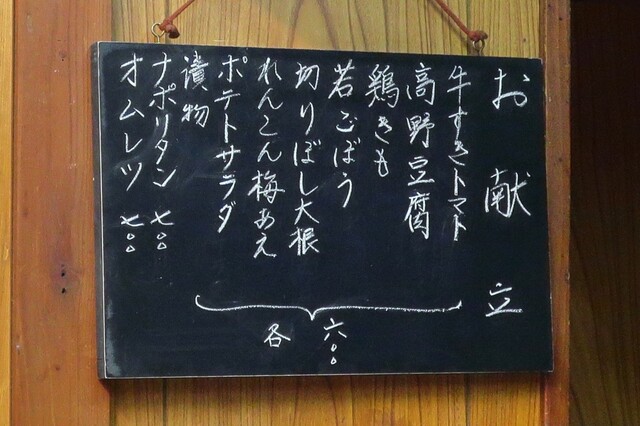 お献立
牛すきトマト
高野豆腐
鶏きも
若ごぼう
切りぼし大根
れんこん梅あえ
ポテトサラダ
漬物
各六〇〇
ナポリタン 七〇〇
オムレツ 七〇〇